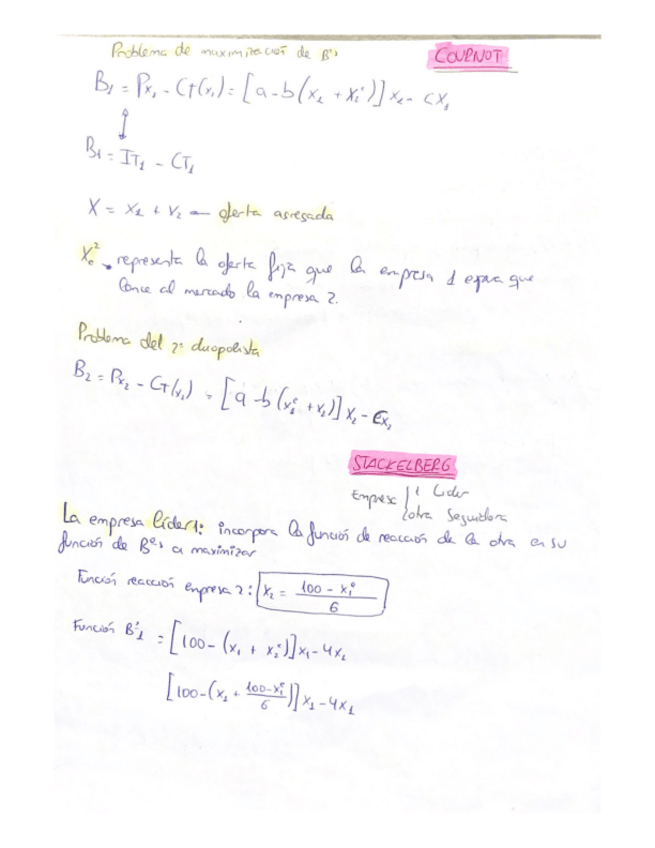 Problema de maximización de Bºs
COURNOT
B₁ = Px₁ - CT(x₁) = [a - b(x₁ + x₂ᵉ)] x₁ - cx₁
↕
B₁ = IT₁ - CT₁
X = x₁ + x₂ — oferta agregada
Xₑ² → representa la oferta fija que la empresa 1 espera que
lance al mercado la empresa 2.
Problema del 2º duopolista
B₂ = Px₂ - CT(x₂) = [a - b(x₁ᵉ + x₂)] x₂ - cx₂
STACKELBERG
Empresa { 1 Lider
{ otra Seguidora
La empresa líder 1: incorpora la función de reacción de la otra en su
función de Bºs a maximizar
Función reacción empresa 2: x₂ = (100 - x₁ᵉ) / 6
Función B₁ = [100 - (x₁ + x₂ᵉ)] x₁ - 4x₁
[100 - (x₁ + (100 - x₁ᵉ) / 6)] x₁ - 4x₁